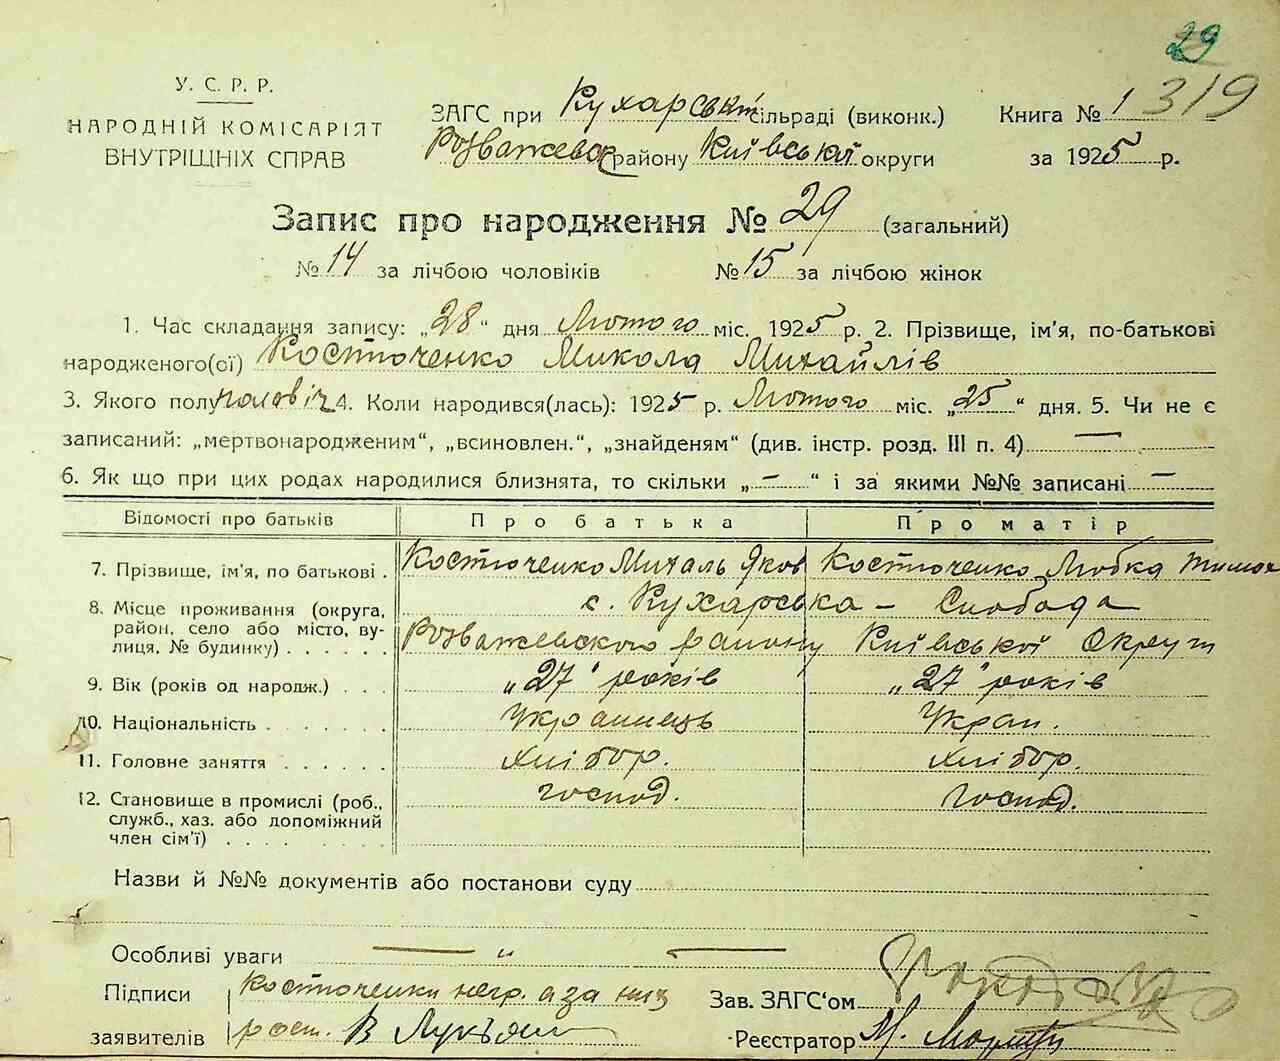 29
319
У. С. Р. Р.
НАРОДНІЙ КОМІСАРІЯТ
ВНУТРІШНІХ СПРАВ
ЗАГС при Кухарськіт сільраді (виконк.)
Розважевск району Київської округи
Книга № 1
за 1925 р.
Запис про народження № 29 (загальний)
№ 14 за лічбою чоловіків № 15 за лічбою жінок
1. Час складання запису: „28“ дня Лютого міс. 1925 р. 2. Прізвище, ім'я, по-батькові
народженого(ої) Костюченко Микола Михайлів
3. Якого полу чоловіч 4. Коли народився(лась): 1925 р. Лютого міс. „25“ дня. 5. Чи не є
записаний: „мертвонародженим“, „всиновлен.“, „знайденям“ (див. інстр. розд. III п. 4) —
6. Як що при цих родах народилися близнята, то скільки „—“ і за якими №№ записані —
Відомості про батьків Про батька Про матір
7. Прізвище, ім'я, по батькові . Костюченко Михаль Яков Костюченко Любка Тимох
8. Місце проживання (округа, район, село або місто, вулиця, № будинку) . . . . . . с. Кухарська – Слобода
Розважевского району Київської Округи
9. Вік (років од народж.) . . . „27“ років „27“ років
10. Національність . . . . . . . Украинець Украи.
11. Головне заняття . . . . . . Хлібор. Хлібор.
12. Становище в промислі (роб., господ. господ.
служб., хаз. або допоміжний
член сім'ї) . . . . . . . . .
Назви й №№ документів або постанови суду
Особливі уваги — „ —
Підписи Костюченки негр. а за них Зав. ЗАГС'ом
заявителів рост. В Реєстратор М.